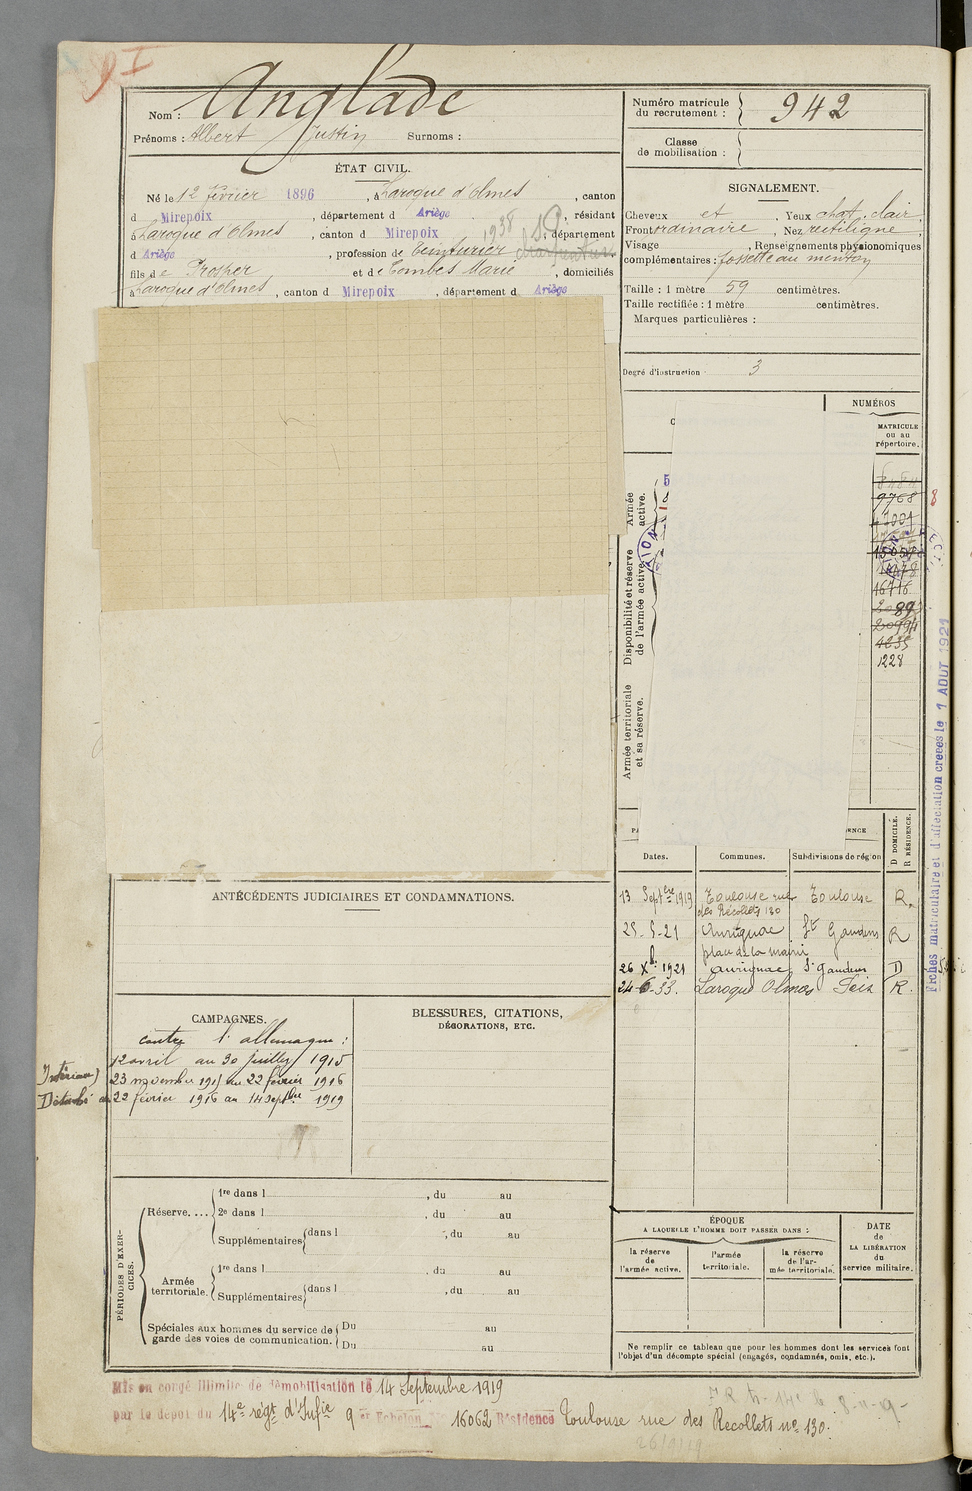 9 I
Nom : Anglade
Prénoms : Albert Justin Surnoms :
ÉTAT CIVIL.
Né le 12 février 1896, à Laroque d'Olmes, canton
d Mirepoix, département d Ariège, résidant
à Laroque d'Olmes, canton d Mirepoix, département
1938
d Ariège, profession de teinturier charpentier
fils de Prosper et de Combes Marie, domiciliés
à Laroque d'Olmes, canton d Mirepoix, département d Ariège
Numéro matricule du recrutement : 942
Classe de mobilisation :
SIGNALEMENT.
Cheveux et, Yeux chat. clair,
Front ordinaire, Nez rectiligne,
Visage , Renseignements physionomiques
complémentaires : fossette au menton
Taille : 1 mètre 59 centimètres.
Taille rectifiée : 1 mètre centimètres.
Marques particulières :
Degré d'instruction 3
NUMÉROS
MATRICULE
ou au
répertoire.
Armée active.
Disponibilité et réserve de l'armée active.
Armée territoriale et sa réserve.
9768
16716
2089
20994
4235
1228
8
Fiches matriculaire et d'affectation creees le 1 AOUT 1921
Dates. Communes. Subdivisions de région
D DOMICILE.
R RÉSIDENCE.
13 Septbre 1919 Toulouse rue des Récollets 130 Toulouse R.
25-5-21 Aurignac St Gaudens R
plan de la mairie
26 Xbre 1921 Aurignac St Gaudens D
24-6-33. Laroque Olmes Foix R.
ANTÉCÉDENTS JUDICIAIRES ET CONDAMNATIONS.
CAMPAGNES.
contre l'allemagne :
12 avril au 30 juillet 1915
Intérieur) 23 novembre 1915 au 22 février 1916
Détaché du 22 février 1916 au 14 septbre 1919
BLESSURES, CITATIONS,
DÉCORATIONS, ETC.
PÉRIODES D'EXERCICES.
Réserve.... 1re dans l , du au
2e dans l , du au
Supplémentaires dans l , du au
Armée territoriale. 1re dans l , du au
Supplémentaires dans l , du au
Spéciales aux hommes du service de garde des voies de communication. Du au
Du au
ÉPOQUE
A LAQUELLE L'HOMME DOIT PASSER DANS :
la réserve de l'armée active.
l'armée territoriale.
la réserve de l'armée territoriale.
DATE
de
LA LIBÉRATION
du
service militaire.
Ne remplir ce tableau que pour les hommes dont les services font
l'objet d'un décompte spécial (engagés, condamnés, omis, etc.).
Mis en congé illimité de démobilisation le 14 Septembre 1919
par le depot du 14e régt d'Infie 9 er Echelon N° 16062 Résidence Toulouse rue des Recollets no 130.